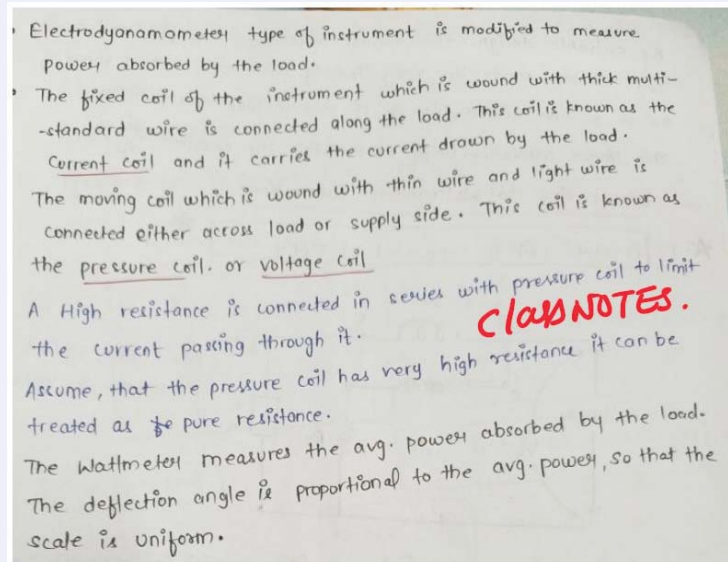 • Electrodyanamometer type of instrument is modified to measure
power absorbed by the load.
• The fixed coil of the instrument which is wound with thick multi-
-standard wire is connected along the load. This coil is known as the
Current coil and it carries the current drawn by the load.
The moving coil which is wound with thin wire and light wire is
connected either across load or supply side. This coil is known as
the pressure coil. or voltage coil
A High resistance is connected in series with pressure coil to limit
the current passing through it.
classNOTES.
Assume, that the pressure coil has very high resistance it can be
treated as pure resistance.
The Wattmeter measures the avg. power absorbed by the load.
The deflection angle is proportional to the avg. power, so that the
scale is uniform.